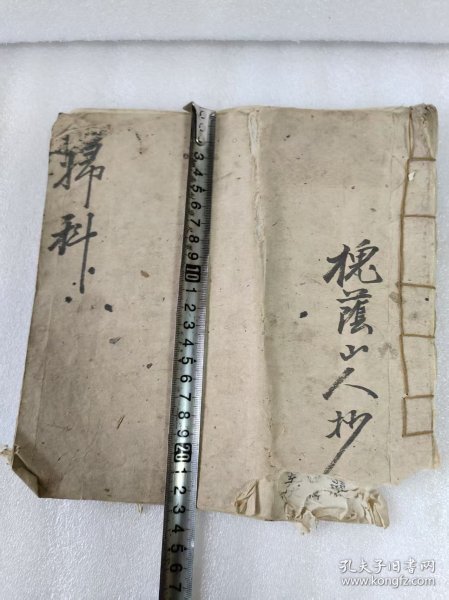 槐蔭山人抄
掃科
3 4 5 6 7 8 9 10 1 2 3 4 5 6 7 8 9 20 1 2 3 4 5
孔夫子旧书网
www.kongfz.com